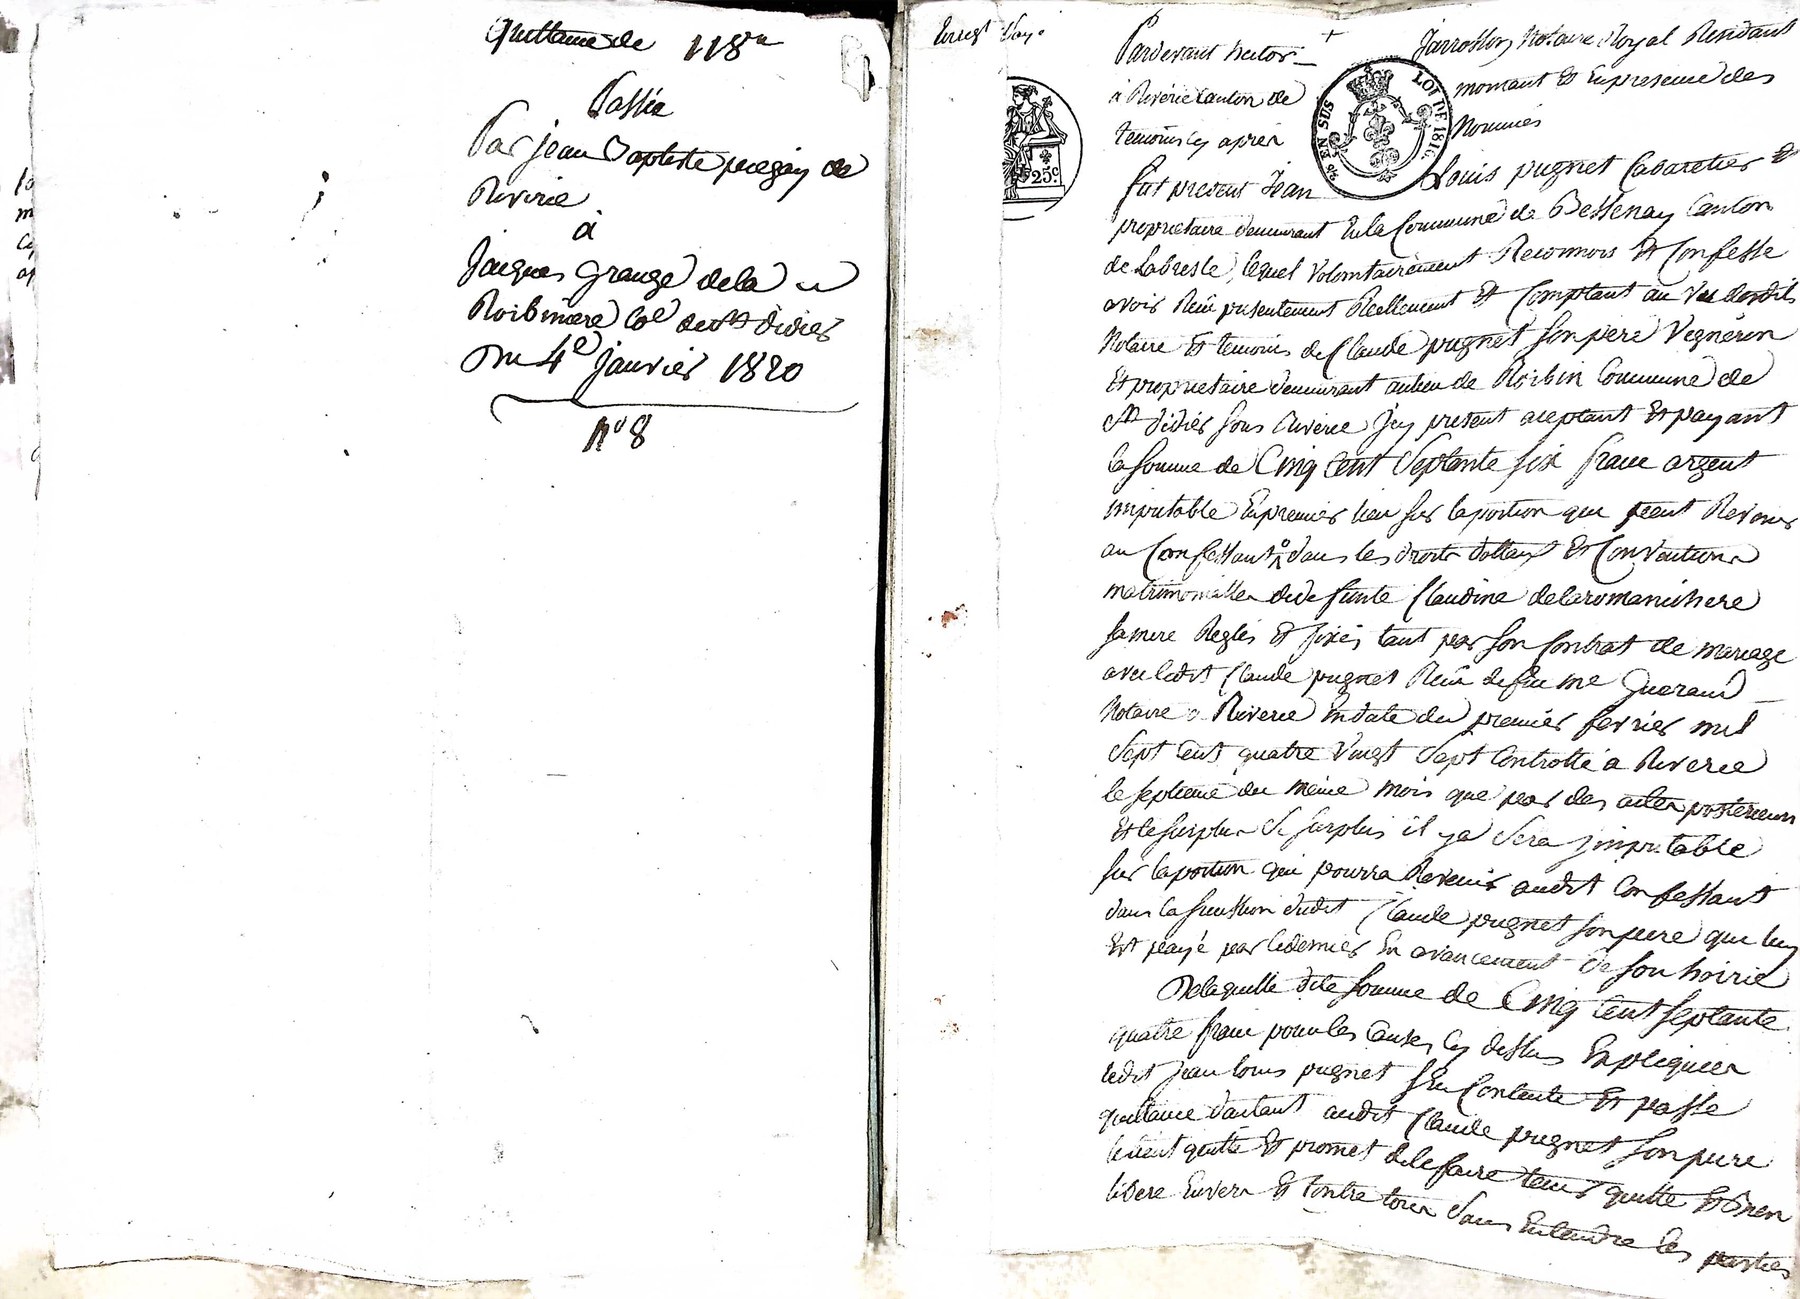 Quittance de 118 #
Passée
Par jean Baptiste pugay de
Riverie
à
Jacques Grange de la
Roibinière Cne de st didier
Du 4e janvier 1820
n° 8
Enregt
Pardevant hector Jarrosson Notaire Royal Residant
à Riverie Canton de mornant Et En presence des
temoins cy après Nommés
LOI DE 1816.
EN SUS
25c.
fut present Jean Louis pugnet Cabaretier Et
proprietaire demeurant En la Commune de Bessenay Canton
de Labresle, lequel volontairement Reconnois Et Confesse
avoir Reçu presentement Réellement Et Comptant au vu desdits
Notaire Et temoins de Claude pugnet son pere Vegneron
Et proprietaire demeurant au lieu de Roibin Commune de
st didier sous Riverie Jcy present aceptant Et payant
la somme de Cinq cent Septante six franc argent
imputable En premier lieu sur la portion qui peut Revenir
au Confessant dans les droits dottaux Et Conventions
matrimonialles de defunte Claudine delaromanchere
sa mere Reglés Et fixés tant par son Contrat de mariage
avec ledit Claude pugnet Reçu de feu me Gueraud
Notaire a Riverie En date du premier fevrier mil
Sept Cent quatre Vingt Sept Controllé a Riverie
le septieme du même mois que par des actes posterieurs
Et le surplus Si surplus il y a Sera jmputable
sur la portion qui pourra Revenir audit Confessant
dans la succession dudit Claude pugnet son pere que luy
Est payé par le dernier En avancement de son hoirie
De laquelle dite somme de Cinq Cent septante
quatre franc pour les Causes cy dessus Expliquées
ledit Jean Louis pugnet s'En Contente Et passe
quittance d'autant audit Claude pugnet son pere
le tient quitte Et promet de le faire tenir quitte Et d'en
libere Envers Et Contre tous Sans Entendre les parties